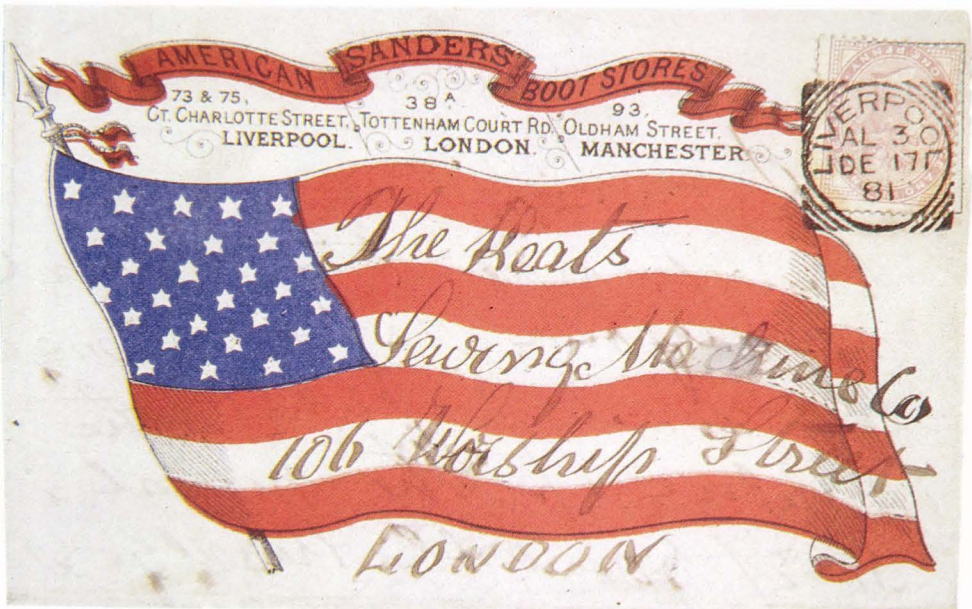 AMERICAN SANDERS' BOOT STORES
73 & 75,
GT. CHARLOTTE STREET,
LIVERPOOL.
38A
TOTTENHAM COURT RD.
LONDON.
93,
OLDHAM STREET.
MANCHESTER
LIVERPOOL
AL 30
DE 17
81
The Keats
Sewing Machine Co
106 Worship Street
LONDON